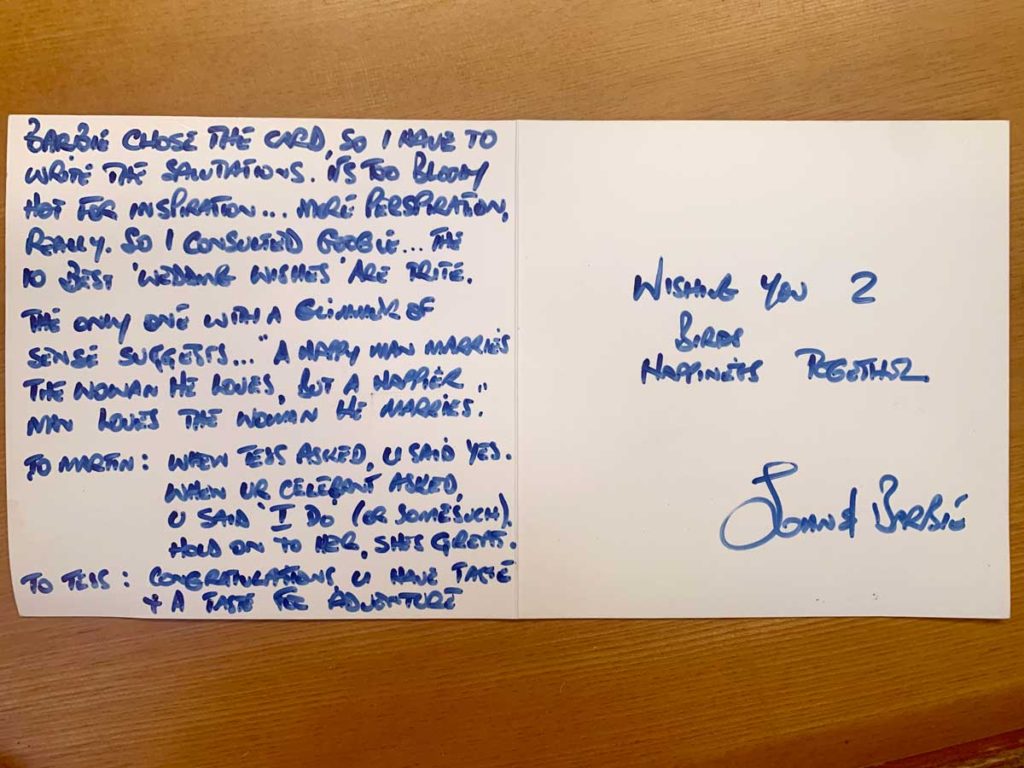 BARBIE CHOSE THE CARD, SO I HAVE TO
WRITE THE SALUTATIONS. IT'S TOO BLOODY
HOT FOR INSPIRATION... MORE PERSPIRATION,
REALLY. SO I CONSULTED GOOGLE... THE
10 BEST 'WEDDING WISHES' ARE TRITE.
THE ONLY ONE WITH A GLIMMER OF
SENSE SUGGESTS... "A HAPPY MAN MARRIES
THE WOMAN HE LOVES, BUT A HAPPIER
MAN LOVES THE WOMAN HE MARRIES."
TO MARTIN: WHEN TESS ASKED, U SAID YES.
WHEN UR CELEBRANT ASKED,
U SAID 'I DO' (OR SOMESUCH).
HOLD ON TO HER, SHE'S GREAT.
TO TESS: CONGRATULATIONS, U HAVE TASTE
+ A TASTE FOR ADVENTURE
WISHING YOU 2
BIRDS
HAPPINESS TOGETHER
& BARBIE